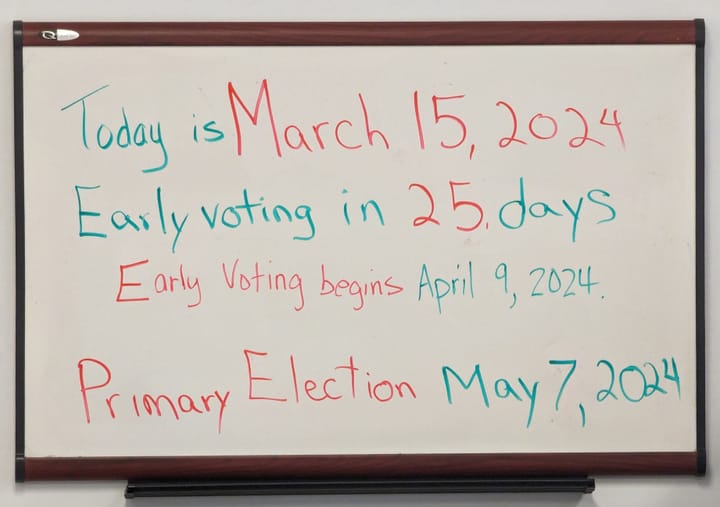 Today is March 15, 2024
Early voting in 25. days
Early Voting begins April 9, 2024.
Primary Election May 7, 2024